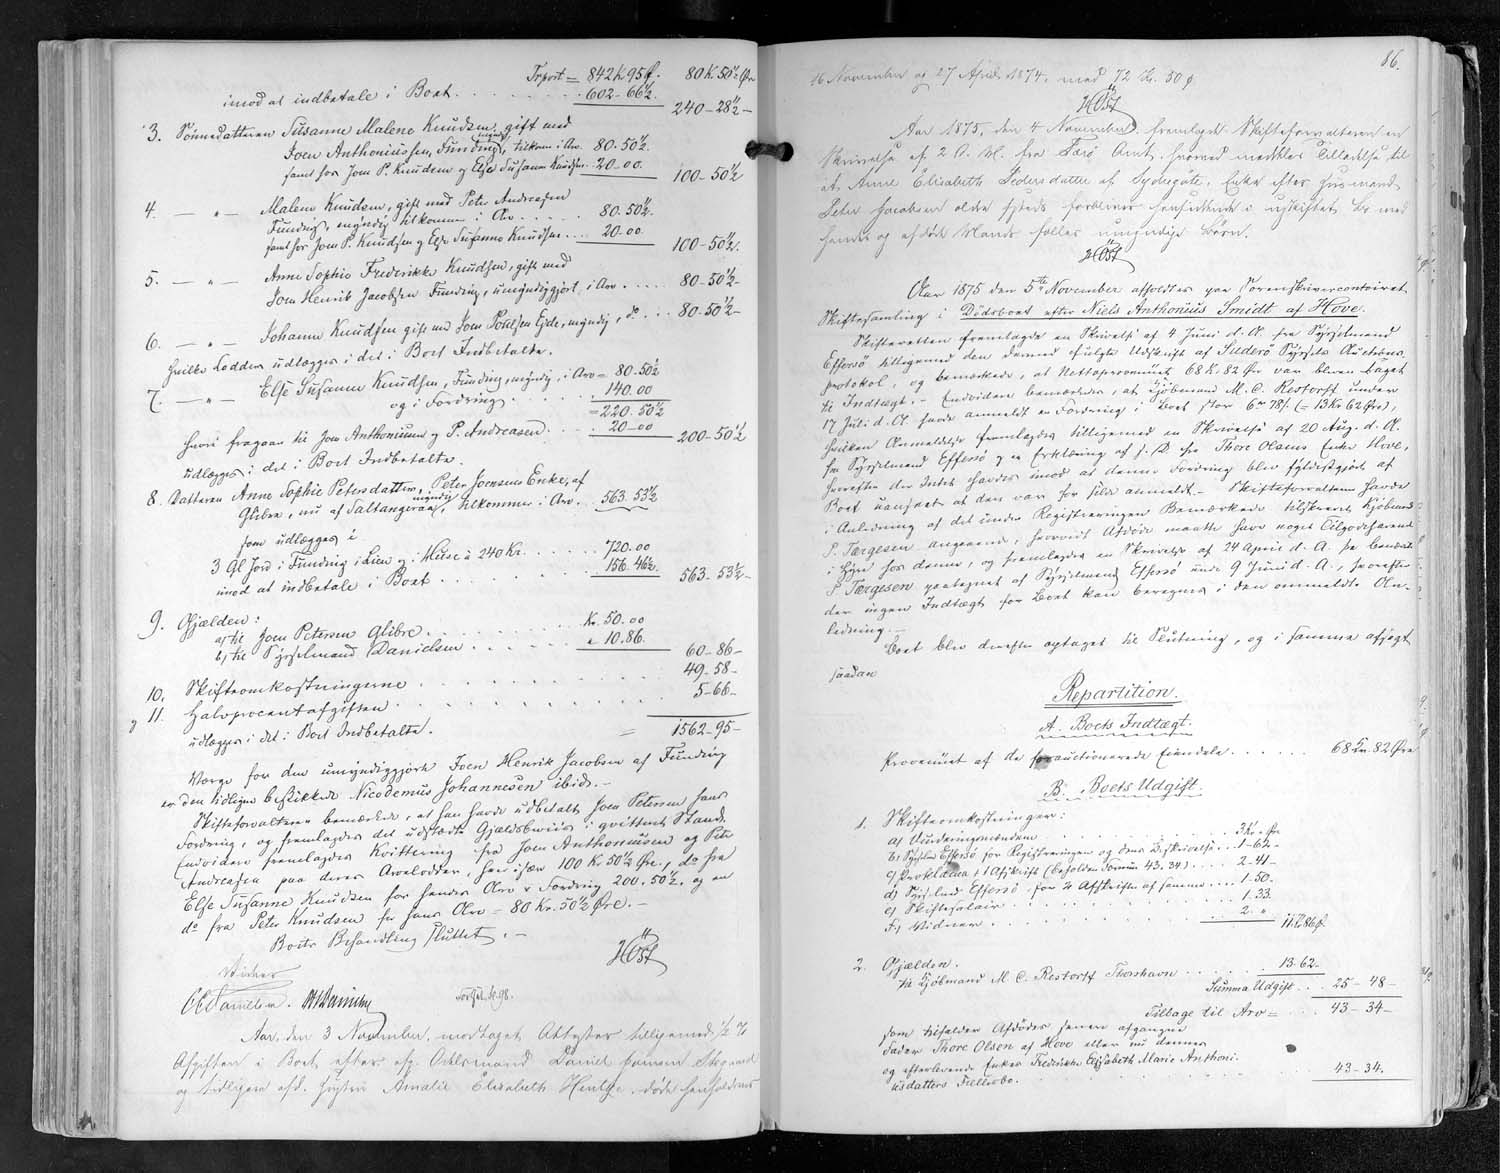 Trport = 842 Kr 95 Ø. 80 K 50½ Øre
imod at indbetale i Boet . . . 602 - 66½. 240 - 28½ -
3. Sønnedatteren Susanne Malene Knudsen, gift med
Joen Anthoniussen, Funding, myndig, tilkom. i Arv. 80 - 50½.
samt for Joen P. Knudsen og Else Susanne Knudsen . . 20 - 00. 100 - 50½
4. — „ — Malene Knudsen, gift med Peter Andreasen
Funding, myndig tilkommer i Arv . . . 80 - 50½.
samt for Joen P. Knudsen og Else Susanne Knudsen . . . 20 - 00. 100 - 50½.
5. — „ — Anne Sophie Frederikke Knudsen, gift med
Joen Henrik Jacobsen Funding, umyndiggjort, i Arv . . . 80 - 50½ -
6. — „ — Johanne Knudsen gift med Joen Poulsen Eide, myndig, do . . . 80 - 50½ -
hvilke Lodder udlægges i det i Boet Indbetalte.
7. — „ — Else Susanne Knudsen, Funding, myndig, i Arv = 80 - 50½
og i Fordring . . . 140 . 00
= 220. 50½
hvori fragaar til Joen Anthoniussen og P. Andreasen . . . 20 - 00 200 - 50½
udlægges i det i Boet Indbetalte.
8 Datteren Anne Sophie Petersdatter, Peter Joensens Enke, af
Glibre, nu af Saltangeraa, myndig, tilkommer i Arv . 563. 53½
som udlægges i
3 Gl Jord i Funding i Lien og i Huse à 240 Kr. . . . 720. 00
imod at indbetale i Boet . . . 156. 46½. 563 - 53½ -
9. Gjælden:
a) til Joen Petersen Glibre . . . Kr. 50. 00
b) til Sysselmand Danielsen . . . „ 10. 86. 60 - 86 -
10. Skifteomkostningerne . . . 49 - 58 -
og 11. Halvprocentafgiften . . . 5 - 66 -
udlægges i det i Boet Indbetalte. = 1562 - 95 -
Værge for den umyndiggjorte Joen Henrik Jacobsen af Funding
er den tidligere beskikkede Nicodemus Johannesen ibid. -
Skifteforvalteren bemærkede, at han havde udbetalt Joen Petersen hans
Fordring, og fremlagdes det udstædte Gjældsbeviis i qvitteret Stand.
Endvidere fremlagdes Kvittering fra Joen Anthoniussen og Peter
Andreasen paa deres Arvelodder, hver især 100 Kr 50½ Øre, do fra
Else Susanne Knudsen for hendes Arv & Fordring 200. 50½, og en
do fra Peter Knudsen for hans Arv = 80 Kr. 50½ Øre. -
Boets Behandling sluttet. -
Høst
Vidner
CC Danielsen.
Aar, den 3 November, modtaget Attester tilligemed ½ %
Afgiften i Boet efter Daniel
og tidligere afd. Hustru Amalie Elisabeth Hentze, døde henholdsvis
86.
16 November og 27 April 1874. med 72 Kr. 50 Ø
Høst
Aar 1875, den 4 November, fremlagde Skifteforvalteren en
Skrivelse af 2 d. M. fra Færø Amt, hvorved meddeles Tilladelse til
at Anne Elisabeth Pedersdatter af Sydregøte, Enke efter Huusmand
Peter Jacobsen forbliver hensiddende i uskiftet Bo med
hendes og afdøde Mands fælles umyndige Børn.
Høst
Aar 1875 den 5te November afholdtes paa Sorenskrivercontoiret
Skiftesamling i Dødsboet efter Niels Anthonius Smidt af Hove.
Skifteretten fremlagde en Skrivelse af 4 Juni d. A. fra Sysselmand
Effersø tilligemed den dermed fulgte Udskrift af Suderø Syssels Auctions-
protokol, og bemærkede, at Nettoprovenuet 68 Kr 82 Øre var bleven taget
til Indtægt. - Endvidere bemærkedes, at Kjøbmand M. C. Restorff under
17 Juli d. A. havde anmeldt en Fordring i Boet stor 6 rd 78 s. (= 13 Kr 62 Øre),
hvilken Anmeldelse fremlagdes tilligemed en Skrivelse af 20 Aug. d. A.
fra Sysselmand Effersø og en Erklæring af s. D. fra Thore Olsens Enke Hove,
hvorefter der Intet havdes imod at denne Fordring blev fyldestgjort af
Boet uanseet at den var for silde anmeldt. - Skifteforvalteren havde
i Anledning af det under Registreringen Bemærkede tilskrevet Kjøbmand
P. Tærgesen angaaende, hvorvidt Afdøde maatte have noget Tilgodehavende
i Eje hos denne, og fremlagdes en Skrivelse af 24 April d. A. fra bemeldte
P. Tærgesen paategnet af Sysselmand Effersø under 9 Juni d. A., hvorefter
der ingen Indtægt for Boet kan beregnes i den ommeldte An-
ledning. -
Boet blev derefter optaget til Slutning, og i samme afsagt
saadan
Repartition.
A. Boets Indtægt.
Provenuet af de forauctionerede Eiendele . . . 68 Kr. 82 Øre
B. Boets Udgift.
1. Skifteomkostninger:
a) Vurderingsmændene . . . 3 Kr „ Øre
b) Sysselmd Effersø for Registreringen og dens Beskrivelse . . 1 - 62 -
c) Protokollen + 1 Afskrift (beholden Formue 43. 34) . . . 2 - 41 -
d) Sysselmd Effersø for ¼ Afskrifter af samme . . . 1. 50.
e) Skiftesalair . . . 1. 33.
f) Vidner . . . 2. „ 11 Kr 86 Ø.
2. Gjælden.
til Kjøbmand M. C. Restorff Thorshavn . . . 13 - 62 -
Summa Udgift . . . 25 - 48 -
Tillage til Arv = . . . 43 - 34 -
som tilfalder Afdødes senere afgangne
Fader Thore Olsen af Hove eller nu dennes
og efterlevende Enkes Fredrikke Elisabeth Marie Anthoni-
usdatters Fællesbo. . . . 43 - 34.